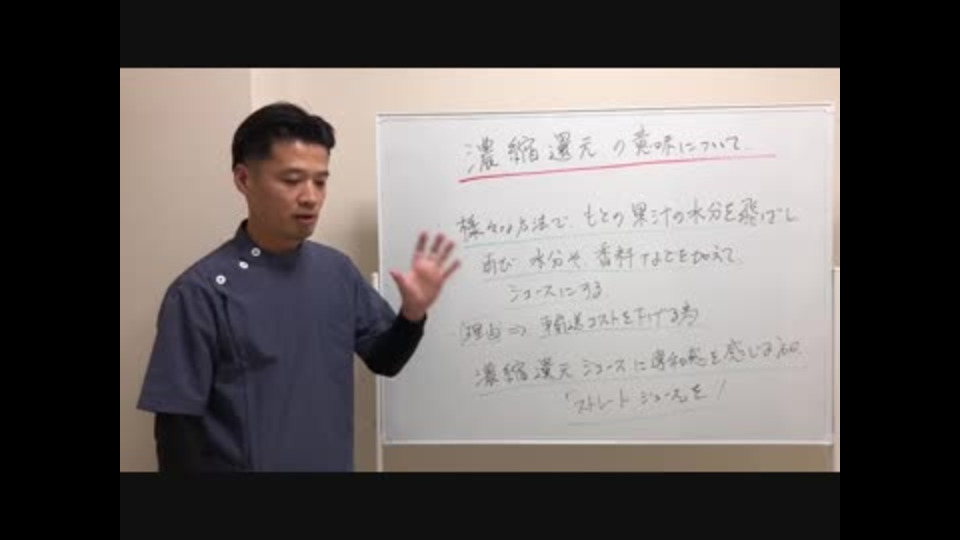 濃縮還元の意味について
様々な方法で、もとの果汁の水分を飛ばし
再び 水分や香料などを加えて
ジュースにする
理由⇒ 輸送コストを下げる為
濃縮還元ジュースに違和感を感じる方は
「ストレートジュース」を!